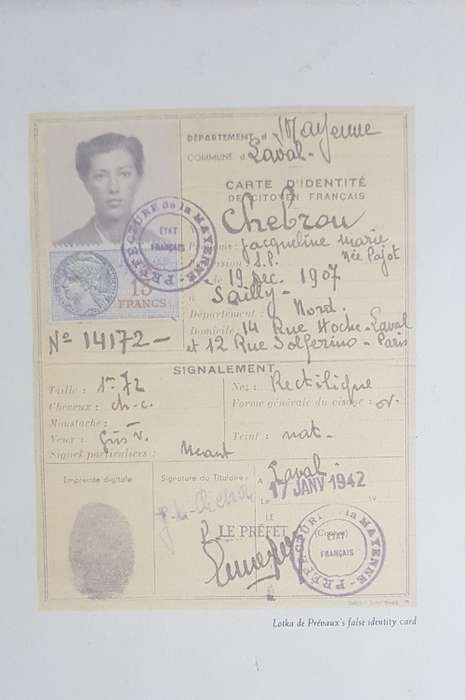 DÉPARTEMENT d Mayenne
COMMUNE d Laval-
CARTE D'IDENTITÉ
DE CITOYEN FRANÇAIS
Chebrou
Jacqueline Marie
née Pajot
S.P.
le 19 Dec. 1907
à Sailly-
Département : Nord.
Domicile 14 Rue Hoche-Laval
et 12 Rue Solferino - Paris
PRÉFECTURE de la MAYENNE
ETAT
FRANÇAIS
15
FRANCS
No 14172-
SIGNALEMENT
Taille : 1m72
Cheveux : ch-c.
Moustache :
Yeux : Gris V.
Signes particuliers : Néant
Nez : Rectiligne
Forme générale du visage : ov.
Teint : nat-
Empreinte digitale
Signature du Titulaire :
A Laval.
Le 17 JANV 1942
LE PRÉFET
PRÉFECTURE de la MAYENNE
ETAT
FRANÇAIS
Lotka de Prévaux's false identity card